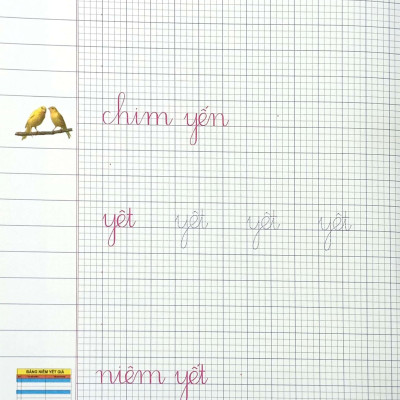 chim yến
yêt yêt yêt yêt
BẢNG NIÊM YẾT GIÁ
niêm yết